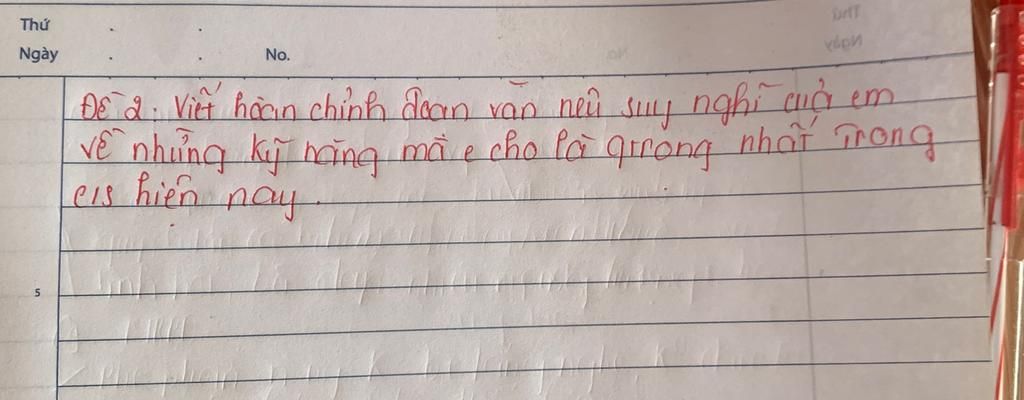 Thứ
Ngày
No.
Đề 2: Viết hoàn chỉnh đoạn văn nêu suy nghĩ của em
về những kỹ năng mà e cho là qtrong nhất trong
c/s hiện nay.
5